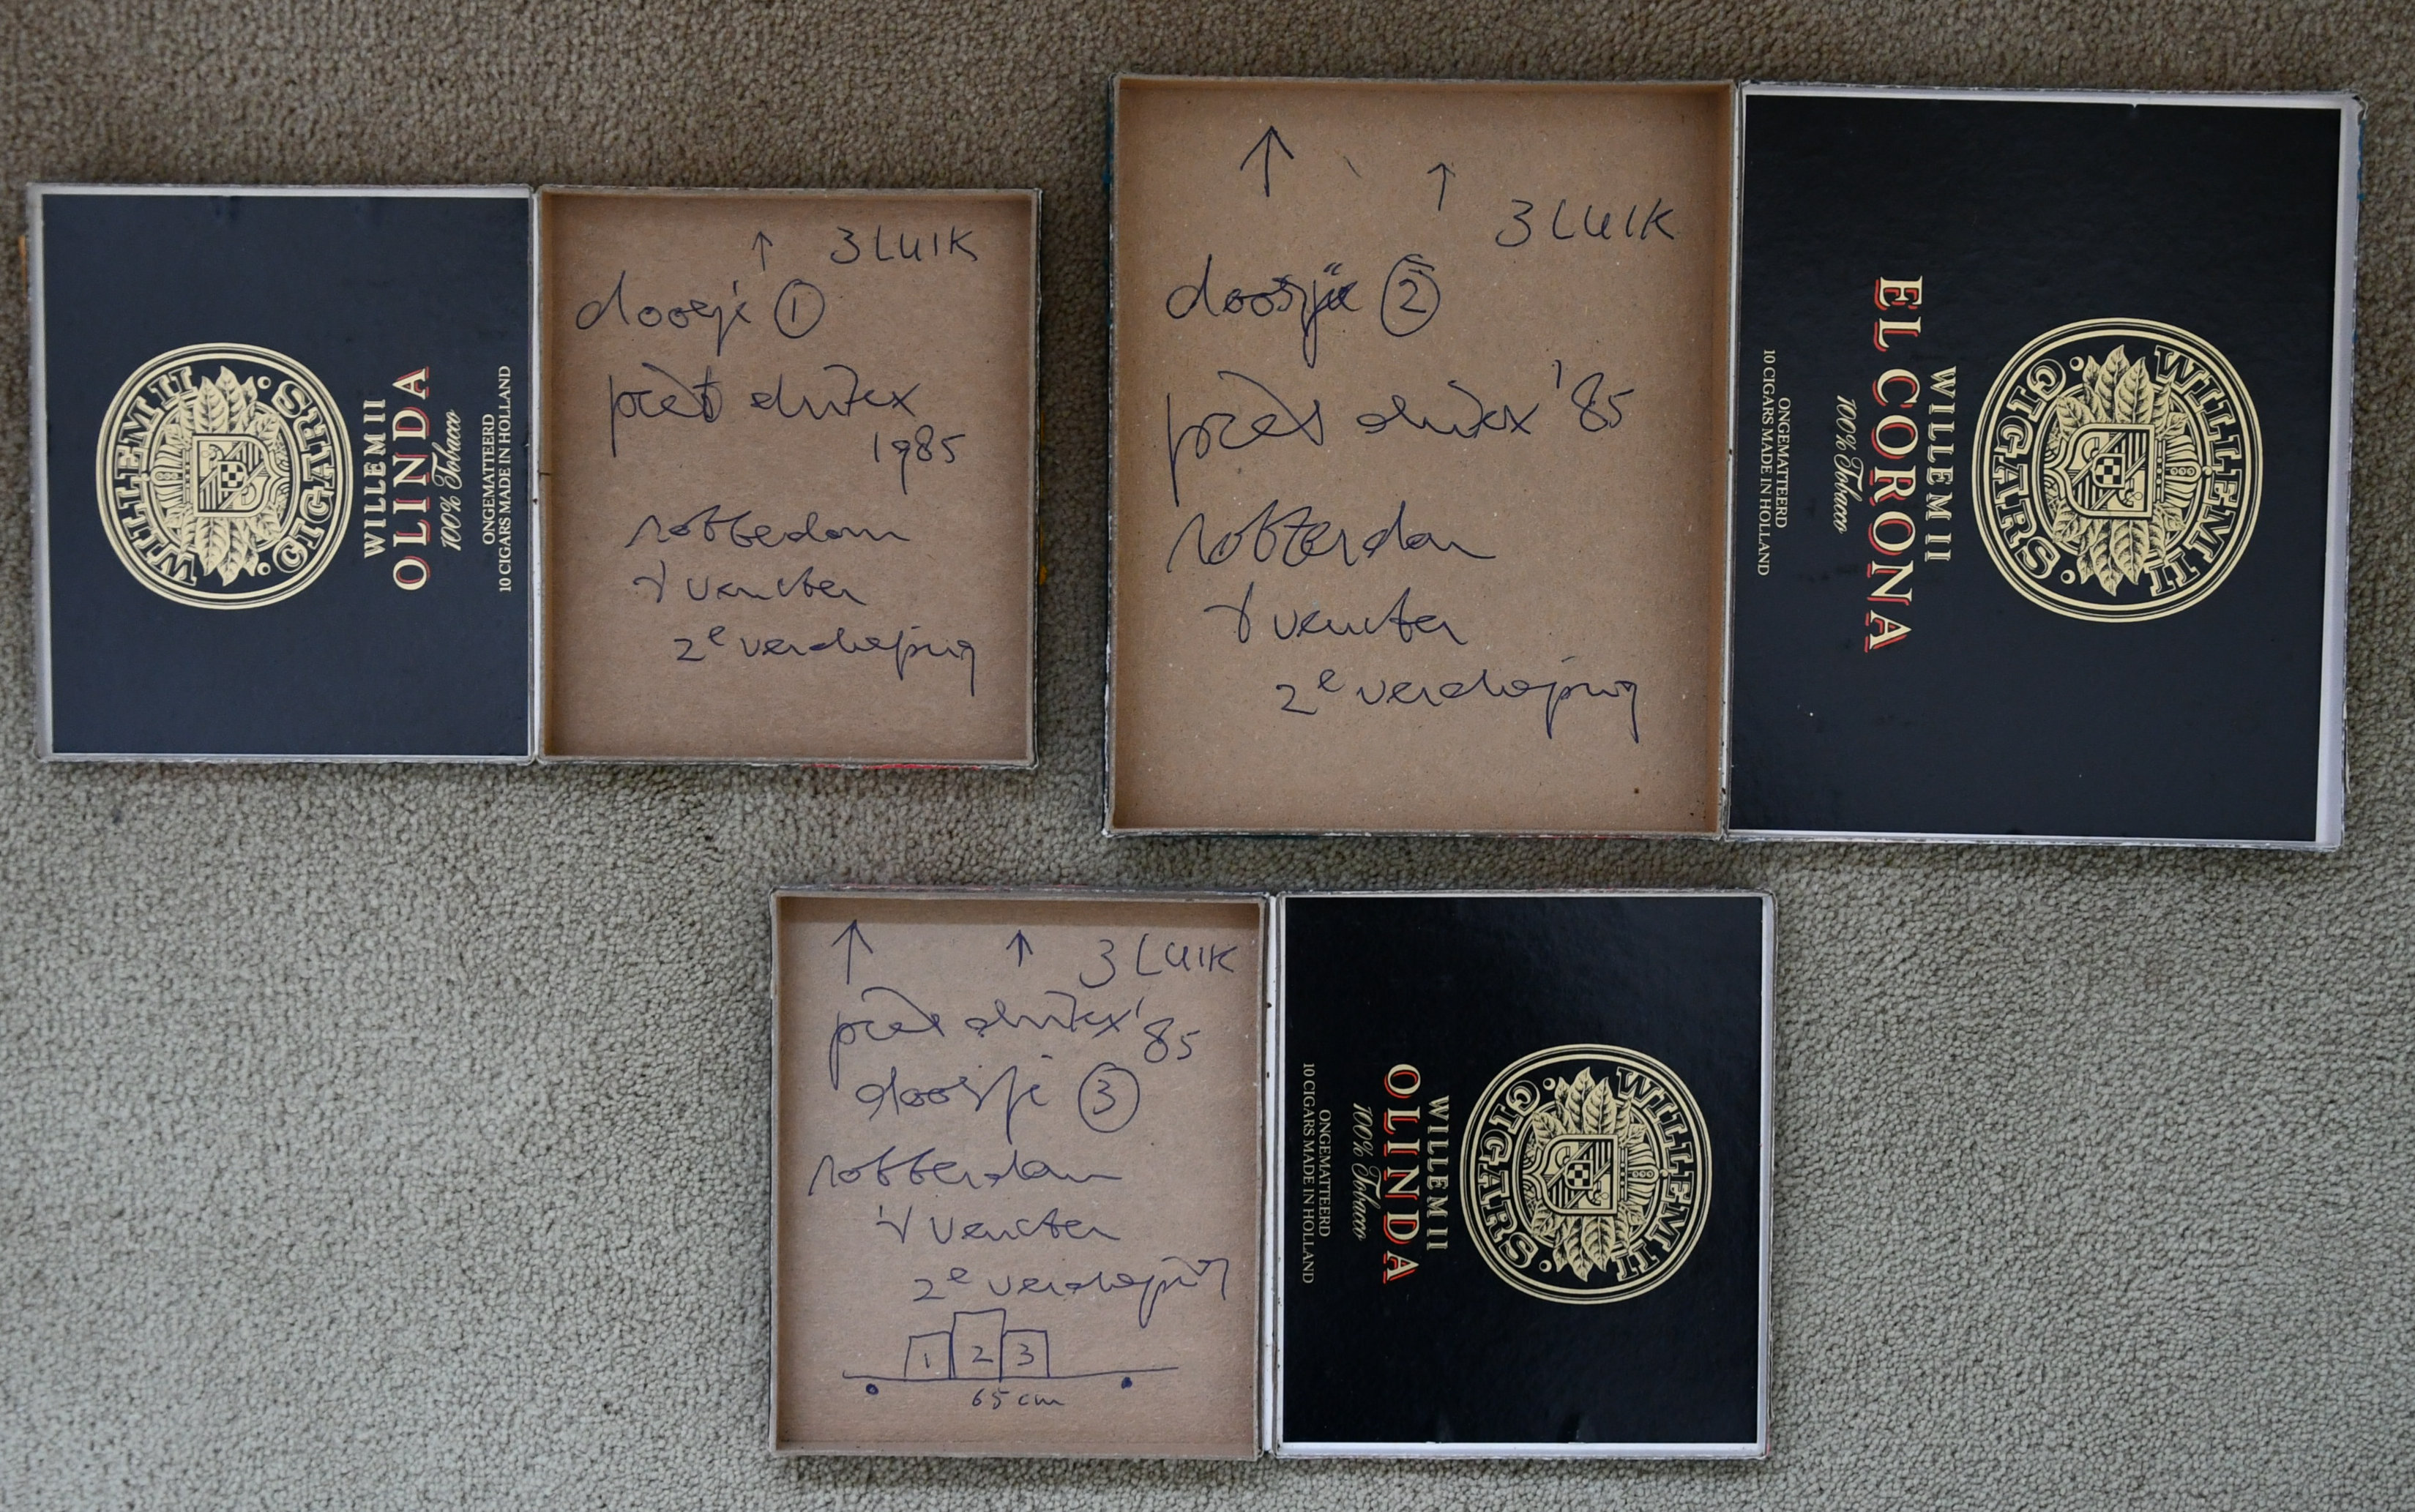 WILLEM II
CIGARS
WILLEM II
OLINDA
100% Tobacco
ONGEMATTEERD
10 CIGARS MADE IN HOLLAND
↑ 3 LUIK
doosje ①
1985
rotterdam
2e verdieping
↑ ↑ 3 LUIK
doosje ②
'85
rotterdam
2e verdieping
WILLEM II
CIGARS
WILLEM II
EL CORONA
100% Tobacco
ONGEMATTEERD
10 CIGARS MADE IN HOLLAND
↑ ↑ 3 LUIK
'85
doosje ③
rotterdam
2e verdieping
1 2 3
65 cm
WILLEM II
CIGARS
WILLEM II
OLINDA
100% Tobacco
ONGEMATTEERD
10 CIGARS MADE IN HOLLAND